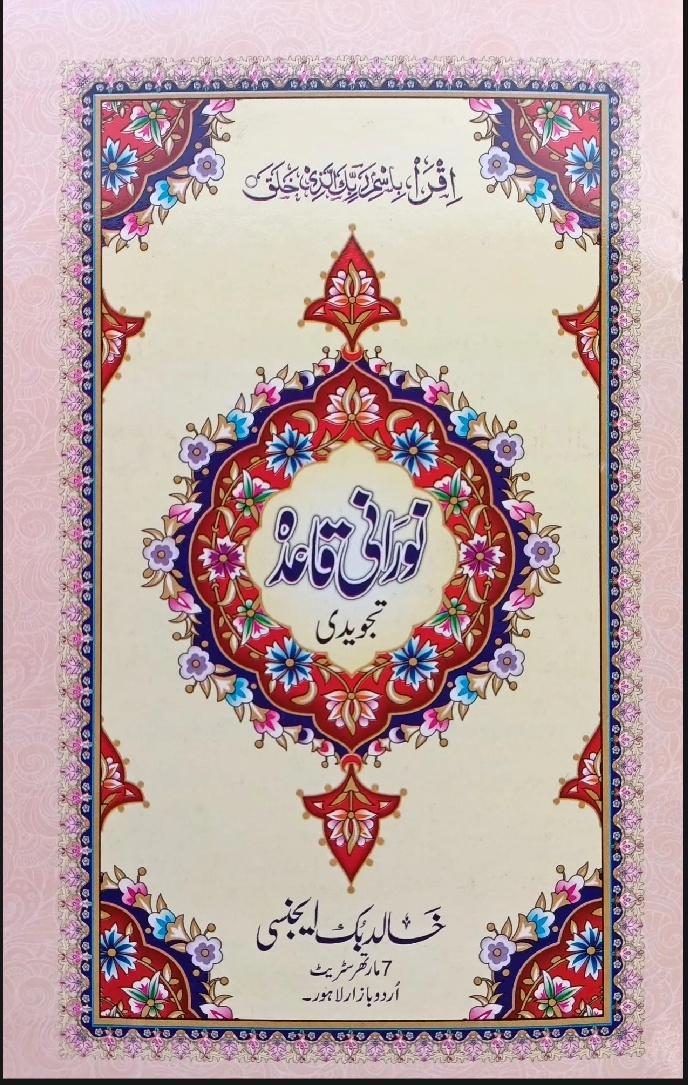 اِقْرَاْ بِاسْمِ رَبِّكَ الَّذِیْ خَلَقَ
نورَانی قاعدہ
تجویدی
خَالد بُک ایجنسی
7 مارتھر سٹریٹ
اُردو بازار لاہور۔